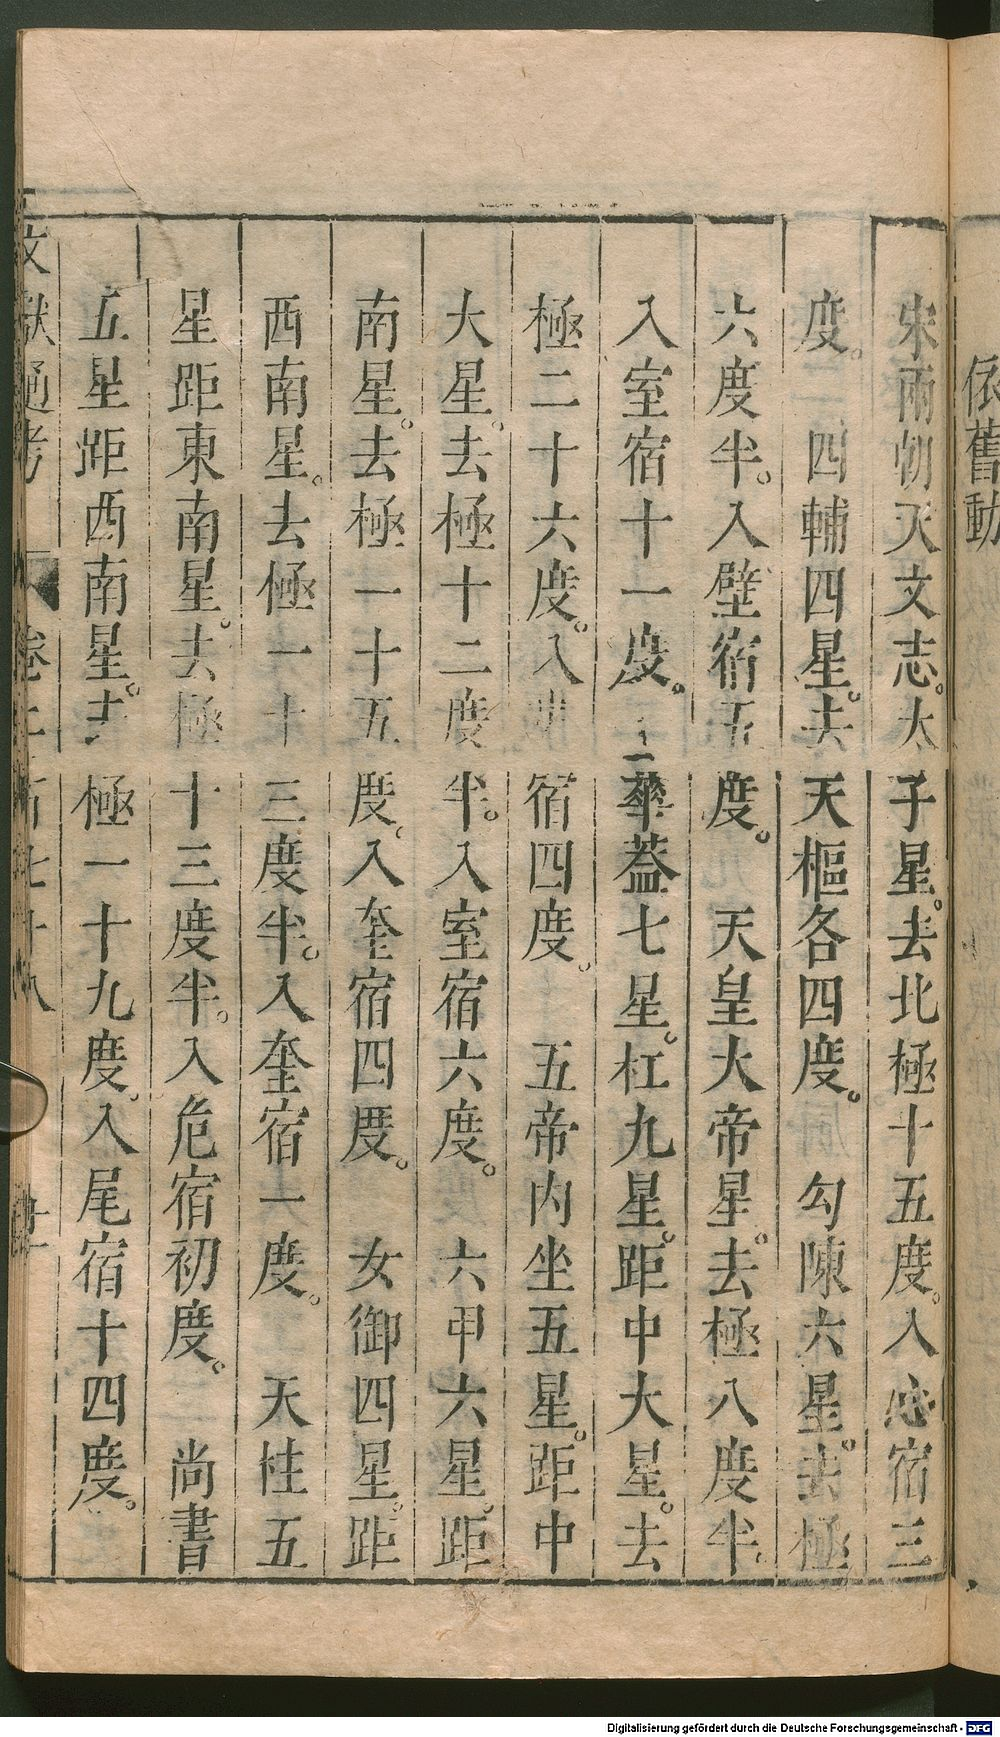 依舊動
宋兩朝天文志。太子星。去北極十五度。入心宿三
度。　四輔四星。去天樞各四度。　勾陳六星。去極
六度半。入壁宿五度。　天皇大帝星。去極八度半。
入室宿十一度。　華蓋七星。杠九星。距中大星。去
極二十六度。入婁宿四度。　五帝內坐五星。距中
大星。去極十二度半。入室宿六度。　六甲六星。距
南星。去極一十五度。入奎宿四度。　女御四星。距
西南星。去極一十三度半。入奎宿一度。　天柱五
星距東南星。去極十三度半。入危宿初度。　尚書
五星距西南星。去極一十九度。入尾宿十四度。
文獻通考　卷二百七十八
Digitalisierung gefördert durch die Deutsche Forschungsgemeinschaft - DFG